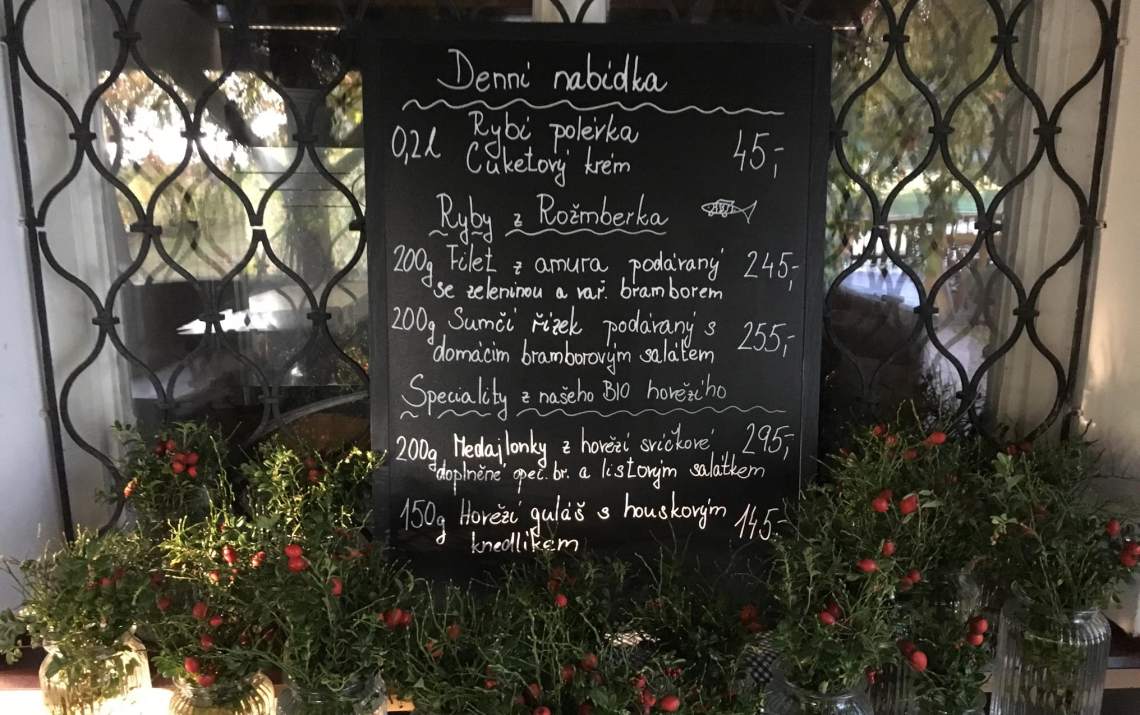 Denní nabídka
0,2l Rybí polévka
Cuketový krém 45,-
Ryby z Rožmberka
200g Filet z amura podávaný 245,-
se zeleninou a vař. bramborem
200g Sumčí řízek podávaný s 255,-
domácím bramborovým salátem
Speciality z našeho BIO hovězího
200g Medajlonky z hovězí svíčkové 295,-
doplněné opeč. br. a listovým salátkem
150g Hovězí guláš s houskovým 145,-
knedlíkem